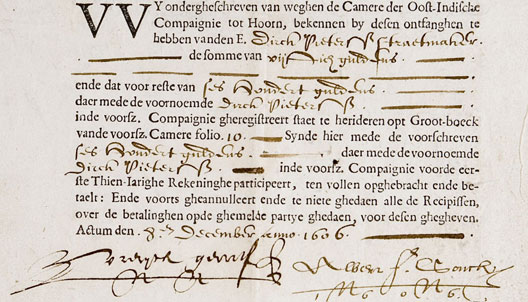 WY ondergheschreven van weghen de Camere der Oost-Indische
Compaignie tot Hoorn, bekennen by desen ontfanghen te
hebben vanden E. Dirck Pietersz Straetmaker.
de somme van vijftich guldens
ende dat voor reste van ses Hondert guldens
daer mede de voornoemde Dirck Pietersz
inde voorsz. Compaignie gheregistreert staet te herideren opt Groot-boeck
vande voorsz. Camere folio. 10. Synde hier mede de voorschreven
ses Hondert guldens daer mede de voornoemde
Dirck Pietersz inde voorsz. Compaignie voorde eer-
ste Thien-Iarighe Rekeninghe participeert, ten vollen opghebracht ende be-
taelt: Ende voorts gheannulleert ende te niete ghedaen alle de Recipissen,
over de betalinghen opde ghemelde partye ghedaen, voor desen ghegheven.
Actum den 8en December anno 1606